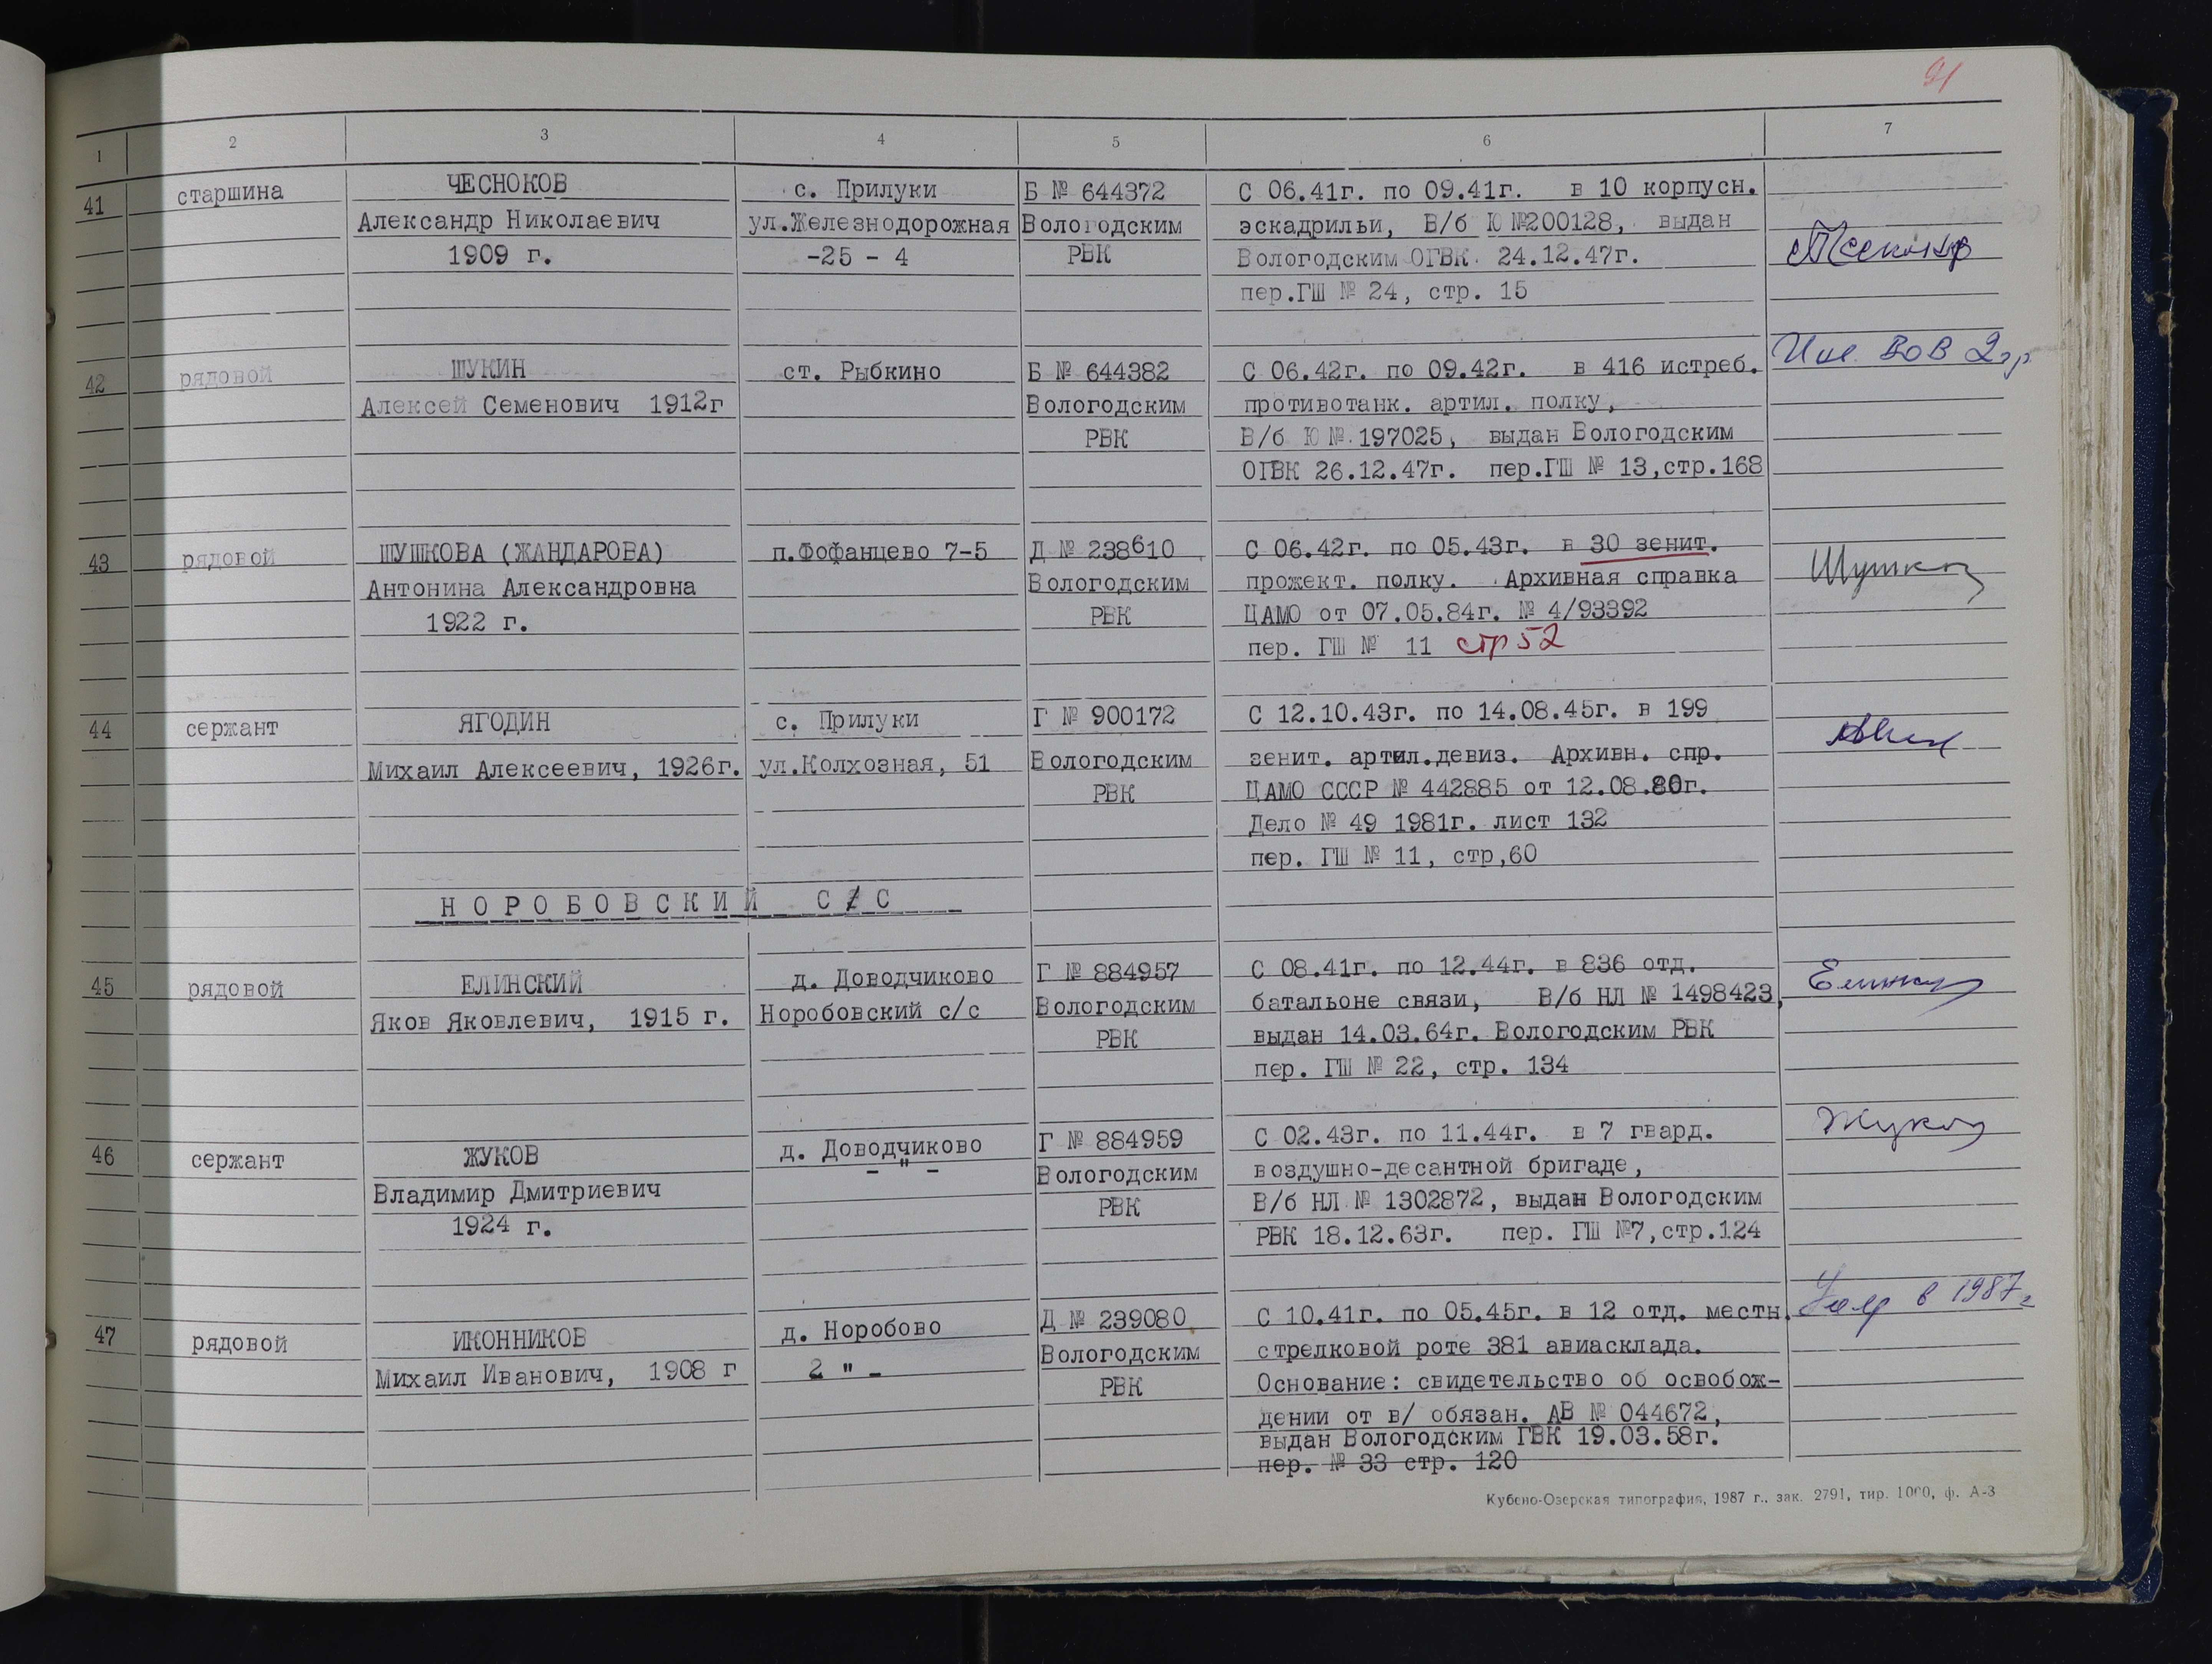 91
1 2 3 4 5 6 7
41 старшина
ЧЕСНОКОВ
Александр Николаевич
1909 г.
с. Прилуки
ул.Железнодорожная
-25 - 4
Б № 644372
Вологодским
РВК
С 06.41г. по 09.41г. в 10 корпусн.
эскадрильи, В/б Ю №200128, выдан
Вологодским ОГВК 24.12.47г.
пер.ГШ № 24, стр. 15
42 рядовой
ШУКИН
Алексей Семенович 1912г
ст. Рыбкино
Б № 644382
Вологодским
РВК
С 06.42г. по 09.42г. в 416 истреб.
противотанк. артил. полку,
В/б Ю № 197025, выдан Вологодским
ОГВК 26.12.47г. пер.ГШ № 13,стр.168
Инв. ВОВ 2 гр.
43 рядовой
ШУШКОВА (ЖАНДАРОВА)
Антонина Александровна
1922 г.
п.Фофанцево 7-5
Д № 238610
Вологодским
РВК
С 06.42г. по 05.43г. в 30 зенит.
прожект. полку. Архивная справка
ЦАМО от 07.05.84г. № 4/93392
пер. ГШ № 11 стр 52
44 сержант
ЯГОДИН
Михаил Алексеевич, 1926г.
с. Прилуки
ул.Колхозная, 51
Г № 900172
Вологодским
РВК
С 12.10.43г. по 14.08.45г. в 199
зенит. артил.девиз. Архивн. спр.
ЦАМО СССР № 442885 от 12.08.80г.
Дело № 49 1981г. лист 132
пер. ГШ № 11, стр,60
НОРОБОВСКИЙ С/С
45 рядовой
ЕЛИНСКИЙ
Яков Яковлевич, 1915 г.
д. Доводчиково
Норобовский с/с
Г № 884957
Вологодским
РВК
С 08.41г. по 12.44г. в 836 отд.
батальоне связи, В/б НЛ № 1498423,
выдан 14.03.64г. Вологодским РВК
пер. ГШ № 22, стр. 134
46 сержант
ЖУКОВ
Владимир Дмитриевич
1924 г.
д. Доводчиково
- " -
Г № 884959
Вологодским
РВК
С 02.43г. по 11.44г. в 7 гвард.
воздушно-десантной бригаде,
В/б НЛ № 1302872, выдан Вологодским
РВК 18.12.63г. пер. ГШ №7,стр.124
Жуков
47 рядовой
ИКОННИКОВ
Михаил Иванович, 1908 г
д. Норобово
2 " -
Д № 239080
Вологодским
РВК
С 10.41г. по 05.45г. в 12 отд. местн.
стрелковой роте 381 авиасклада.
Основание: свидетельство об освобож-
дении от в/ обязан. АВ № 044672,
выдан Вологодским ГВК 19.03.58г.
пер. № 33 стр. 120
Умер в 1987г
Кубено-Озерская типография, 1987 г., зак. 2791, тир. 1000, ф. А-3